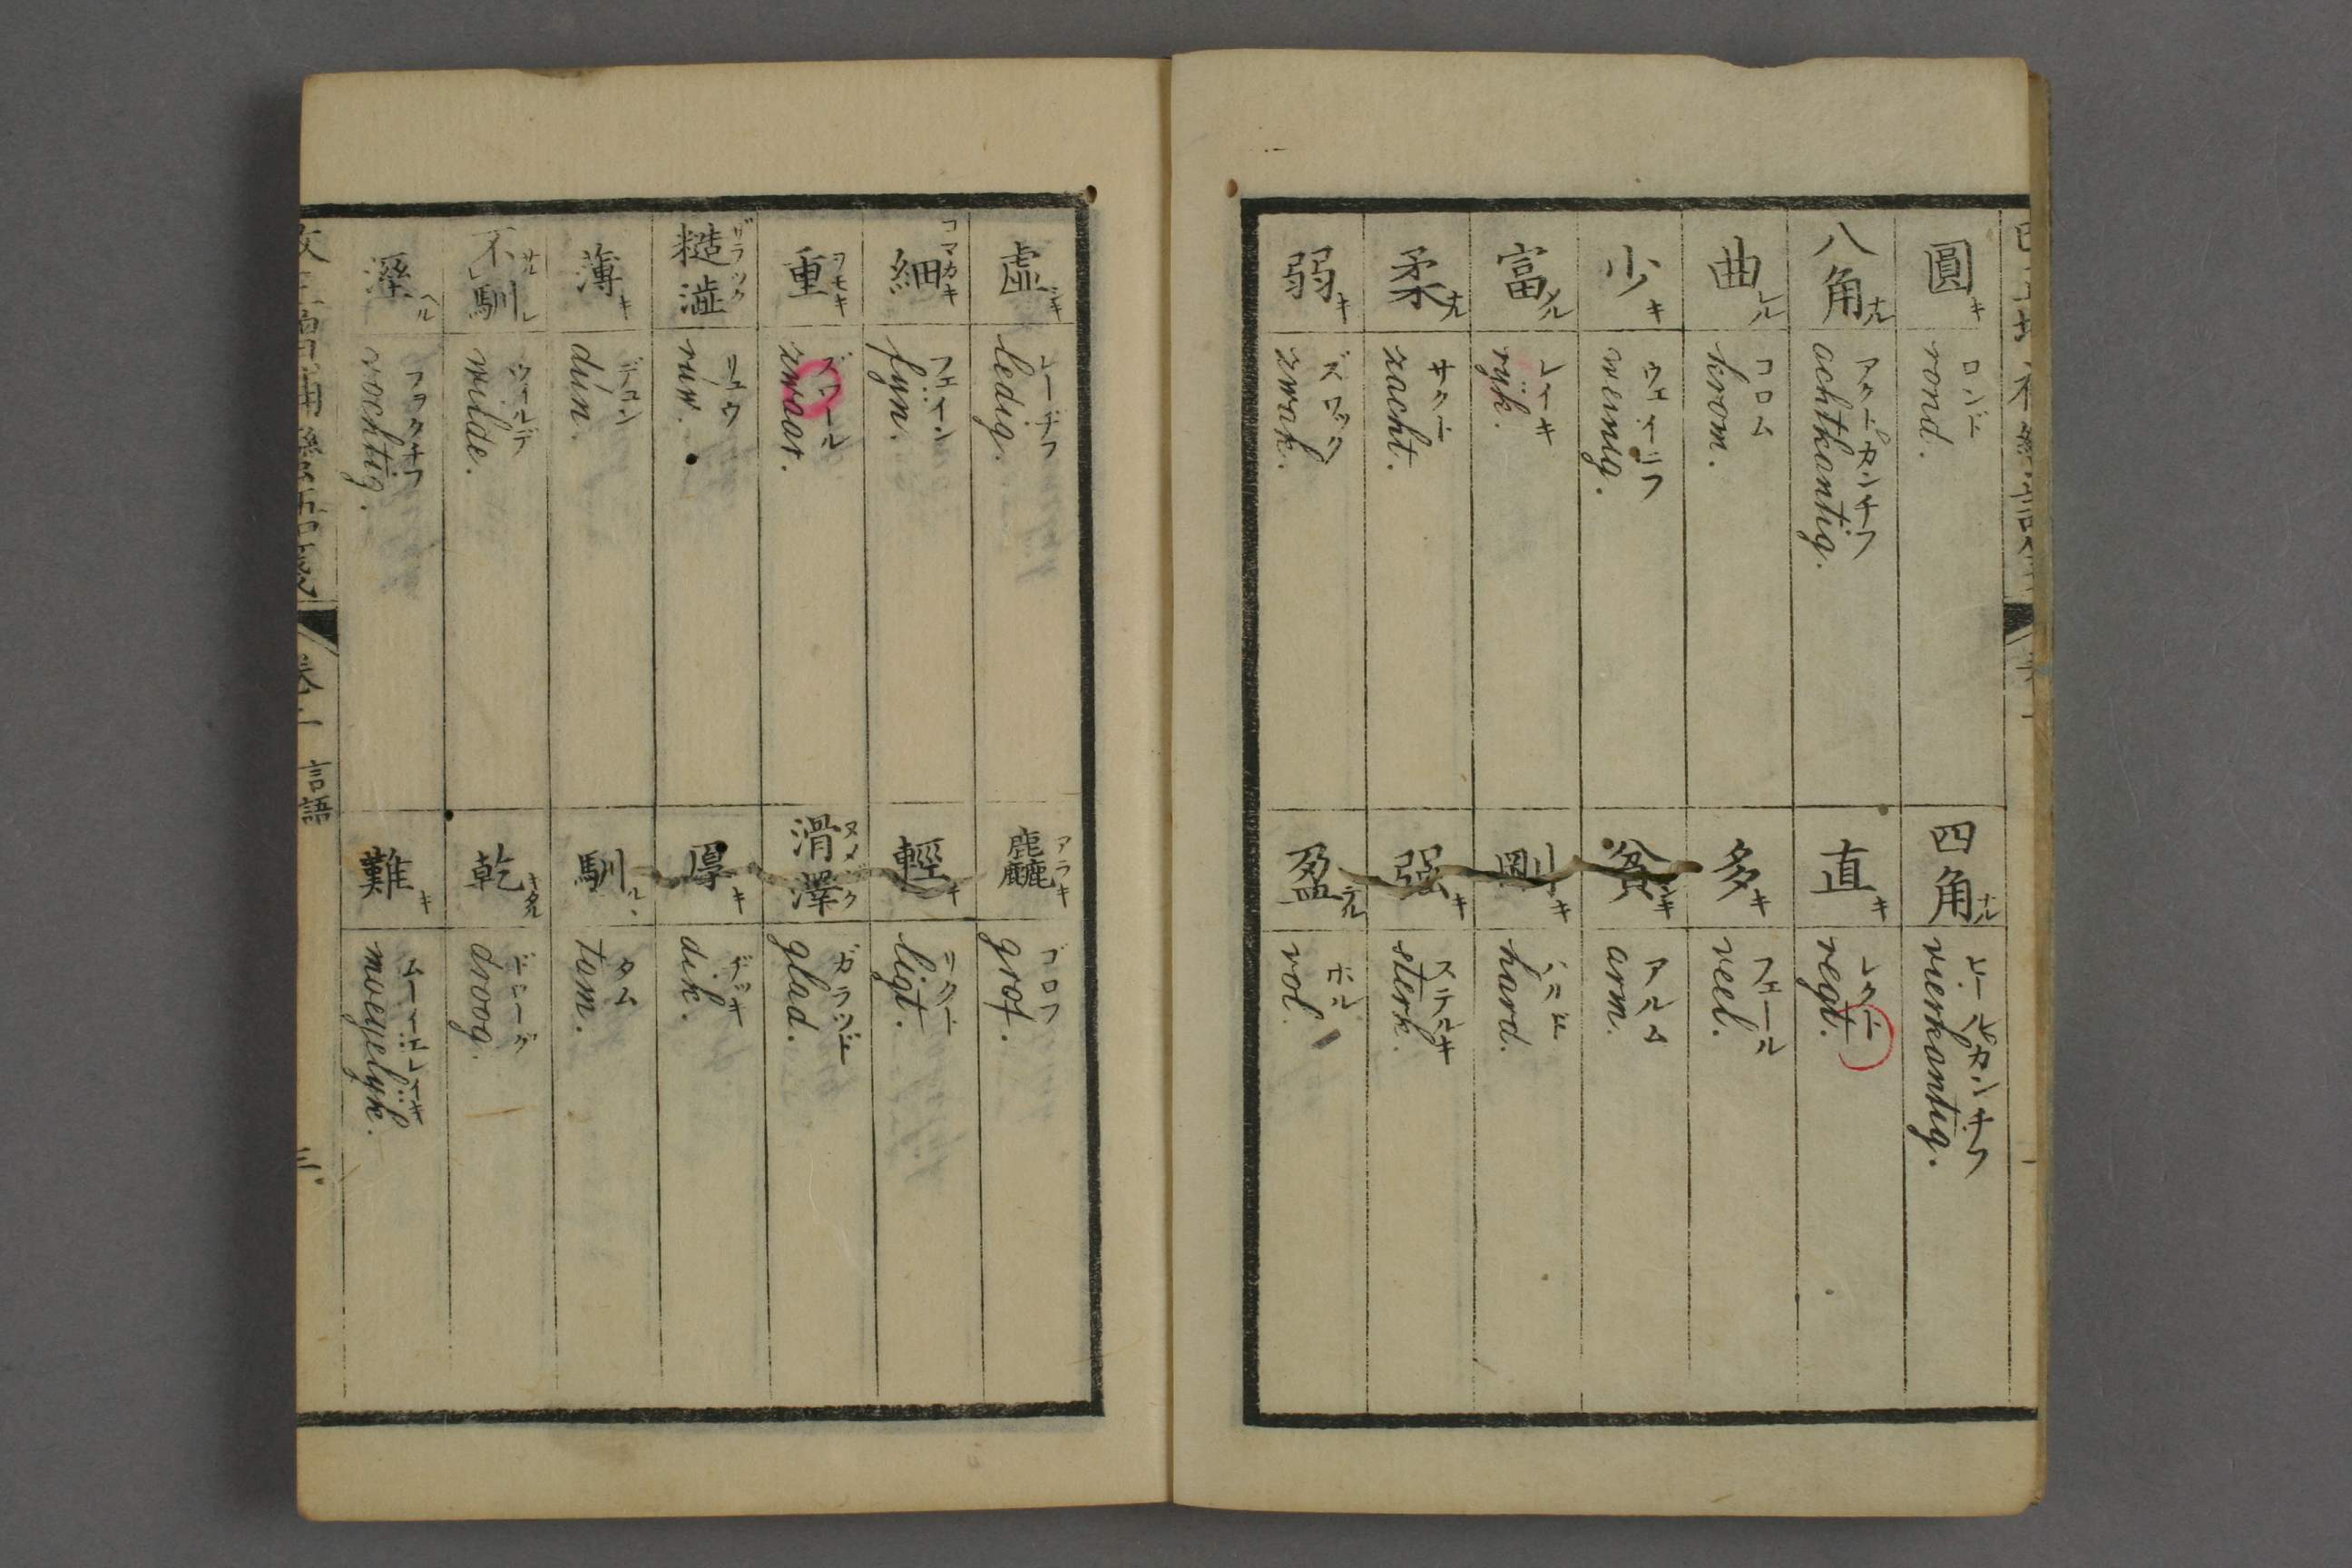 圓キ
ロンド
rond.
四角ナル
ヒールカンチフ
vierkantig.
八角ナル
アクトカンチフ
achtkantig.
直キ
レクト
regt.
曲レル
コロム
krom.
多キ
フェール
veel.
少キ
ウェイニフ
weinig.
貧シキ
アルム
arm.
富メル
レイキ
ryk.
剛キ
ハルド
hard.
柔ナル
サクト
zacht.
强キ
ステルキ
sterk.
弱キ
ズワック
zwak.
盈テル
ホル
vol.
虛シキ
レーヂフ
ledig.
麤アラキ
ゴロフ
grof.
細コマカキ
フェイン
fyn.
輕キ
リクト
ligt.
重ヲモキ
ズワール
zwaar.
滑澤ヌメヅク
ガラッド
glad.
糙澁ザラツク
リュウ
rúw.
厚キ
ヂッキ
dik.
薄キ
デュン
dún.
馴ルヽ
タム
tam.
不馴サルレ
ウィルデ
wilde.
乾キタル
ドローグ
droog.
溼ヘル
フヲクチフ
vochtig.
難キ
ムーイエレイキ
moeyelyk.
卷一
言語
三